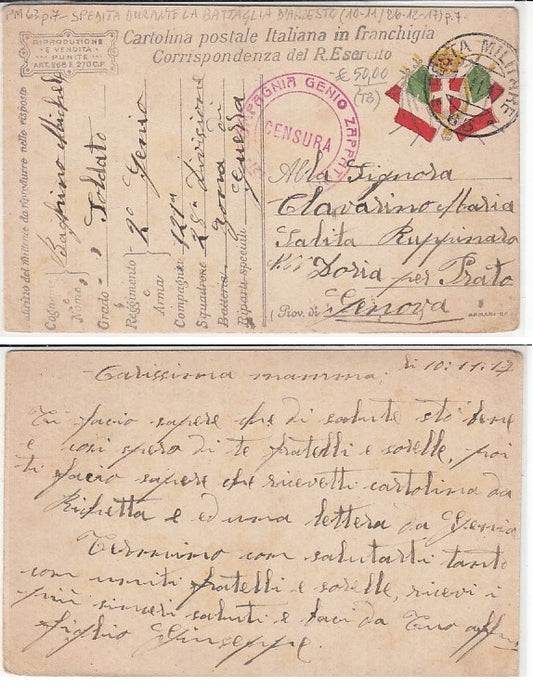 PM 63 p.7 - SPEDITA DURANTE LA BATTAGLIA D'ARRESTO (10-11/26-12-17) p.7-
RIPRODUZIONE
E VENDITA
PUNITE
ART. 266 E 270 C.P.
Cartolina postale Italiana in franchigia
Corrispondenza del R. Esercito
€ 50,00
(TB)
POSTA MILITARE
63
COMPAGNIA GENIO ZAPPATORI
CENSURA
Indirizzo del mittente da riprodurre nelle risposte
Cognome
Nome
Grado - Soldato
Reggimento 2° Genio
Arma
Compagnia 121a
Squadrone 28a Divisione
Batteria Zona di
Riparti speciali Guerra
Alla Signora
Clavarino Maria
Salita Ruppinaro
Doria per Prato
(Prov. di Genova)
Carissima mamma, li 10:11:17
Ti facio sapere che di salute stò bene
e cosi spero di te fratelli e sorelle, poi
ti facio sapere che ricevetti cartolina da
Richetta e ed una lettera da
Termino com salutarti tanto
com uniti fratelli e sorelle, ricevi i
più sinceri saluti e baci da Tuo aff
figlio Giuseppe.